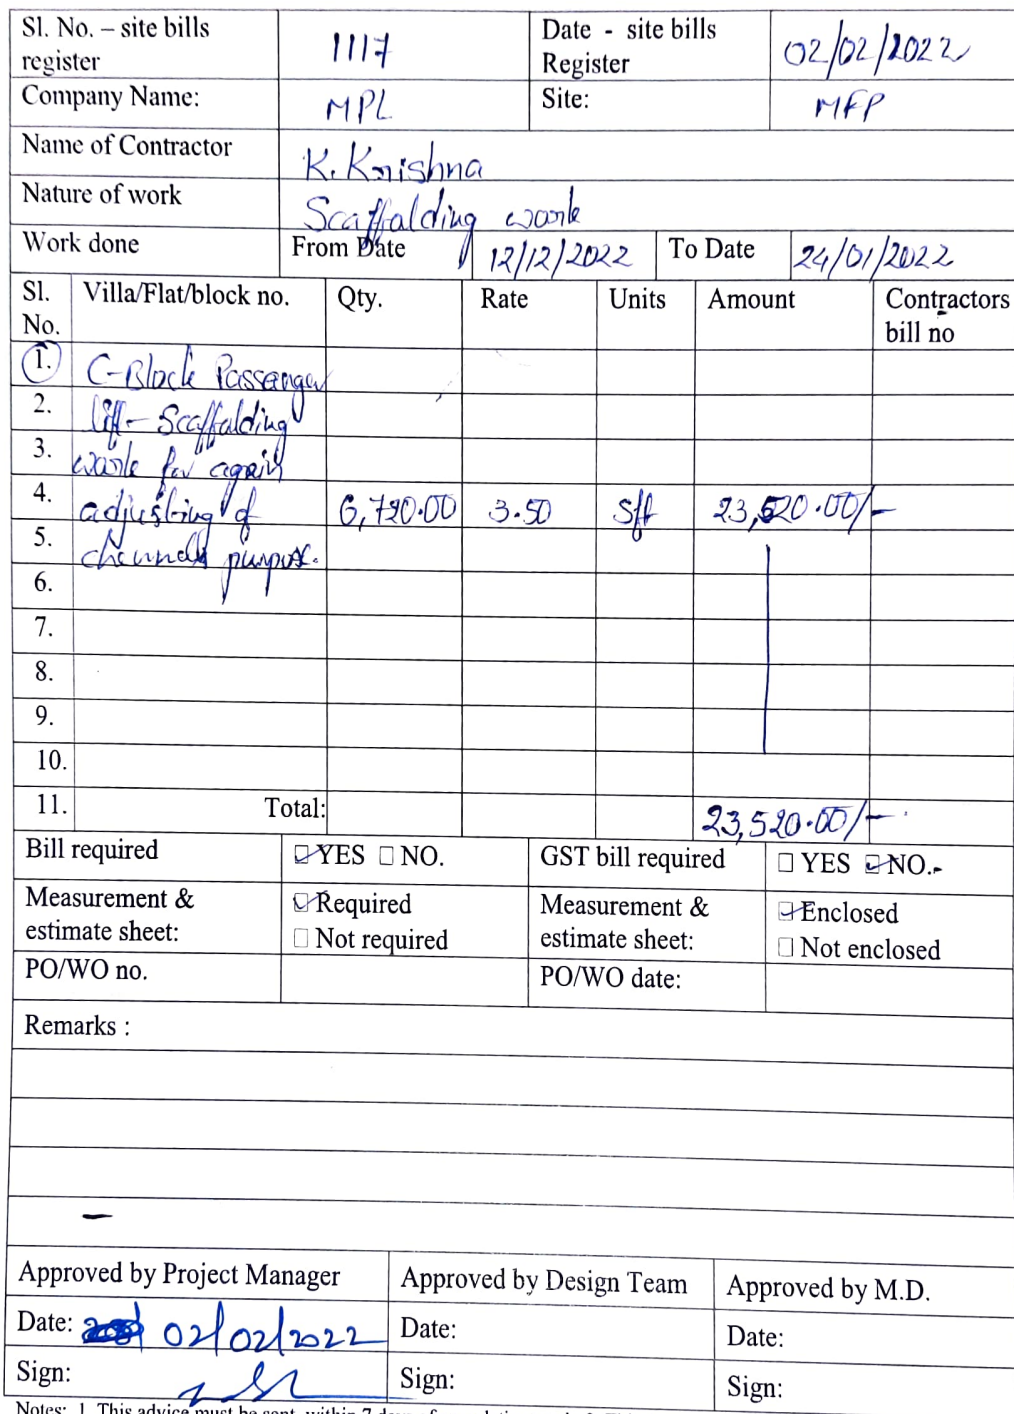 Sl. No. – site bills register 1117 Date - site bills Register 02/02/2022
Company Name: MPL Site: MFP
Name of Contractor K. Krishna
Nature of work Scaffalding work
Work done From Date 12/12/2022 To Date 24/01/2022
Sl. No. Villa/Flat/block no. Qty. Rate Units Amount Contractors bill no
1. C-Block Passenger
2. lift - Scaffalding
3. work for again
4. adjusting of 6,720.00 3.50 Sft 23,520.00/-
5. channels purpose.
6.
7.
8.
9.
10.
11. Total: 23,520.00/-
Bill required YES NO. GST bill required YES NO.
Measurement & estimate sheet: Required Not required Measurement & estimate sheet: Enclosed Not enclosed
PO/WO no. PO/WO date:
Remarks :
Approved by Project Manager Approved by Design Team Approved by M.D.
Date: 02/02/2022 Date: Date:
Sign: Sign: Sign:
Notes: 1. This advice must be sent within 7 days